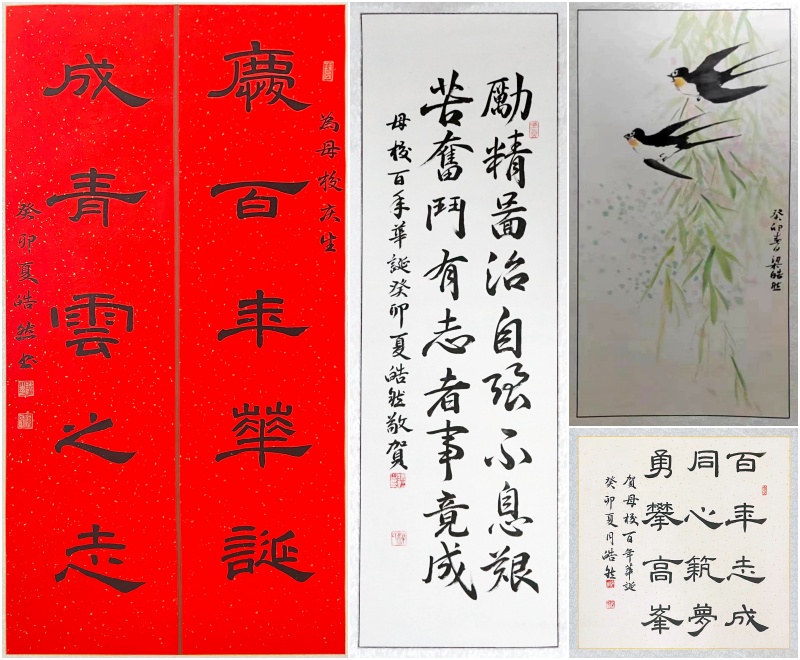 為母校慶生
慶百年華誕
成青雲之志
癸卯夏皓然书
勵精啚治自强不息艱
苦奮鬥有志者事竟成
母校百年華誕癸卯夏皓然敬賀
癸卯春月梁皓然
百年志成
同心筑夢
勇攀高峯
賀母校百年華誕
癸卯夏月皓然